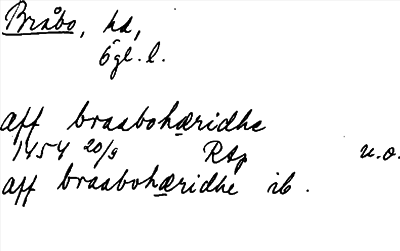 Bråbo, hd,
Ögl. l.
aff braabohæridhe
1454 20/9 RAp u.o.
aff braabohæridhe ib.